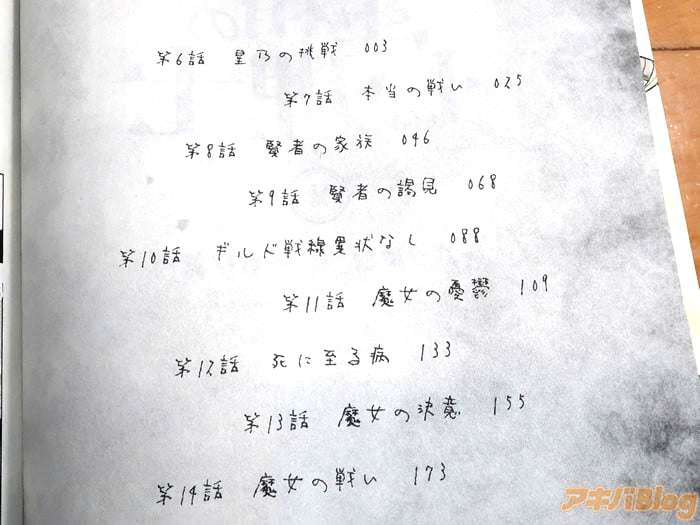 第6話 星乃の挑戦 003
第7話 本当の戦い 025
第8話 賢者の家族 046
第9話 賢者の謁見 068
第10話 ギルド戦線異状なし 088
第11話 魔女の憂鬱 109
第12話 死に至る病 133
第13話 魔女の決意 155
第14話 魔女の戦い 173
アキバBlog